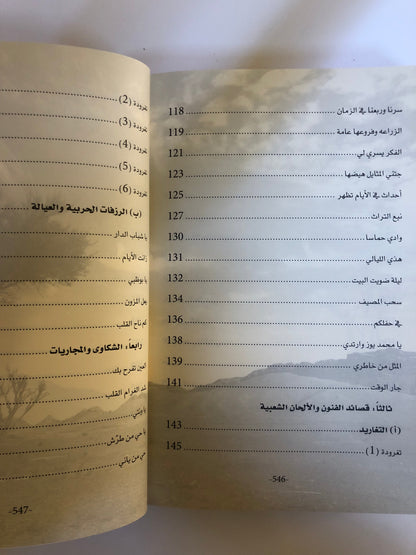 سرنا وربعنا في الزمان 118
الزراعه وفروعها عامة 119
الفكر يسري لي 121
جتني المثايل هيضها 123
أحداث في الأيام تظهر 125
نبع التراث 127
وادي حماسا 130
هذي الليالي 131
ليلة ضويت البيت 132
سحب المصيف 134
في حفلكم 136
يا محمد يوز وارتدي 138
المثل من خاطري 139
جار الوقت 141
ثالثاً، قصائد الفنون والألحان الشعبية
(أ) التغاريد 143
تغرودة (1) 145
-546-
تغرودة (2)
تغرودة (3)
تغرودة (4)
تغرودة (5)
تغرودة (6)
(ب) الرزفات الحربية والعيالة
يا شباب الدار
زانت الأيام
يا بوظبي
هل المزون
كم ناح القلب
رابعاً، الشكاوى والمجاريات
العين تفرح بك
الغرام القلب
يا ونتي
يا حي من طرّش
حي من ياني
-547-